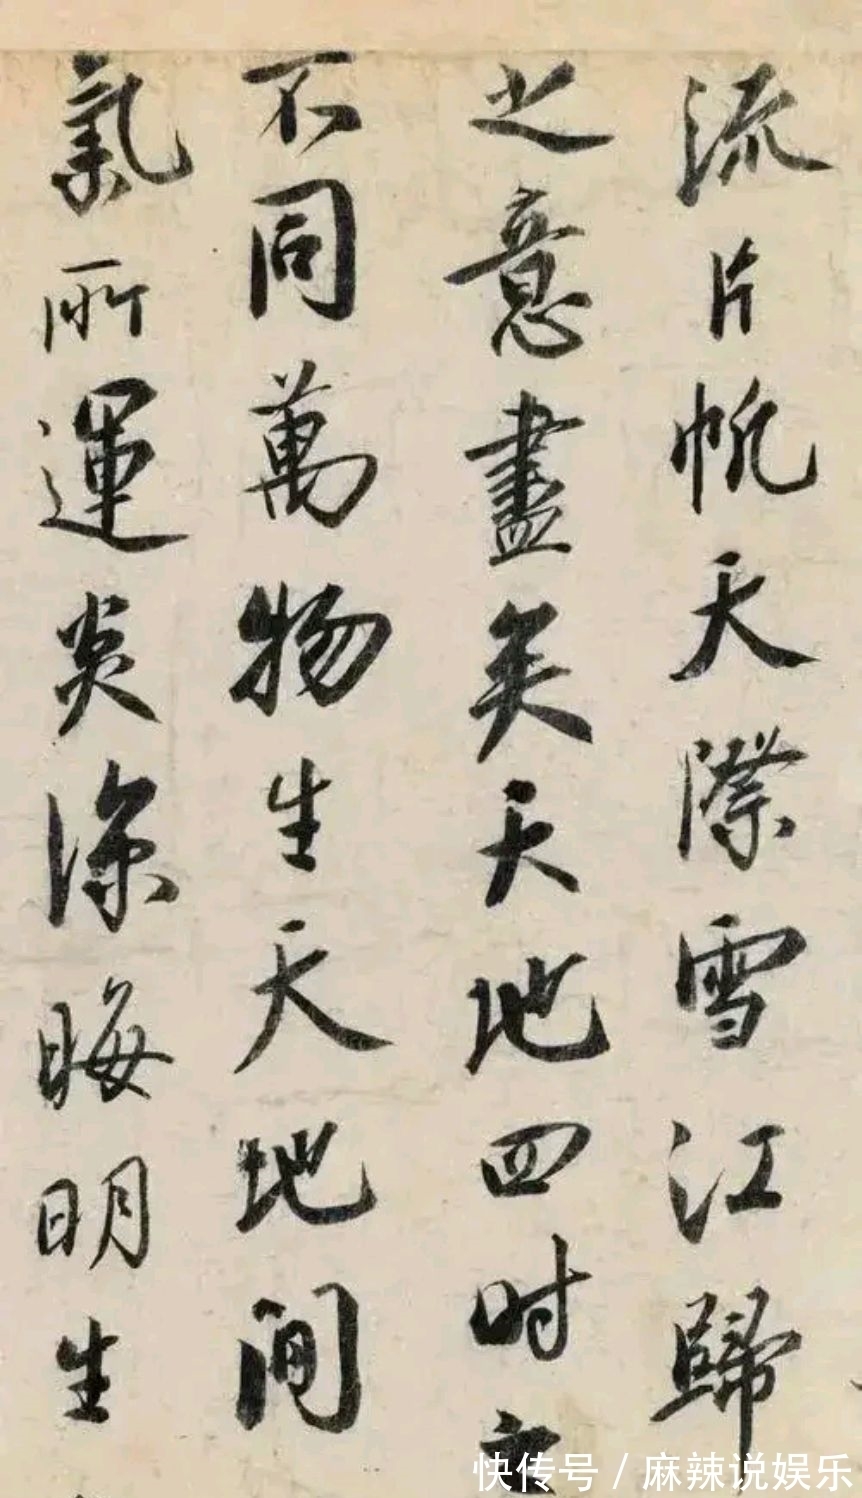 流片帆天際雪江歸
之意盡矣天地四时
不同萬物生天地间
氣所運炎涼晦明生
快传号/麻辣说娱乐